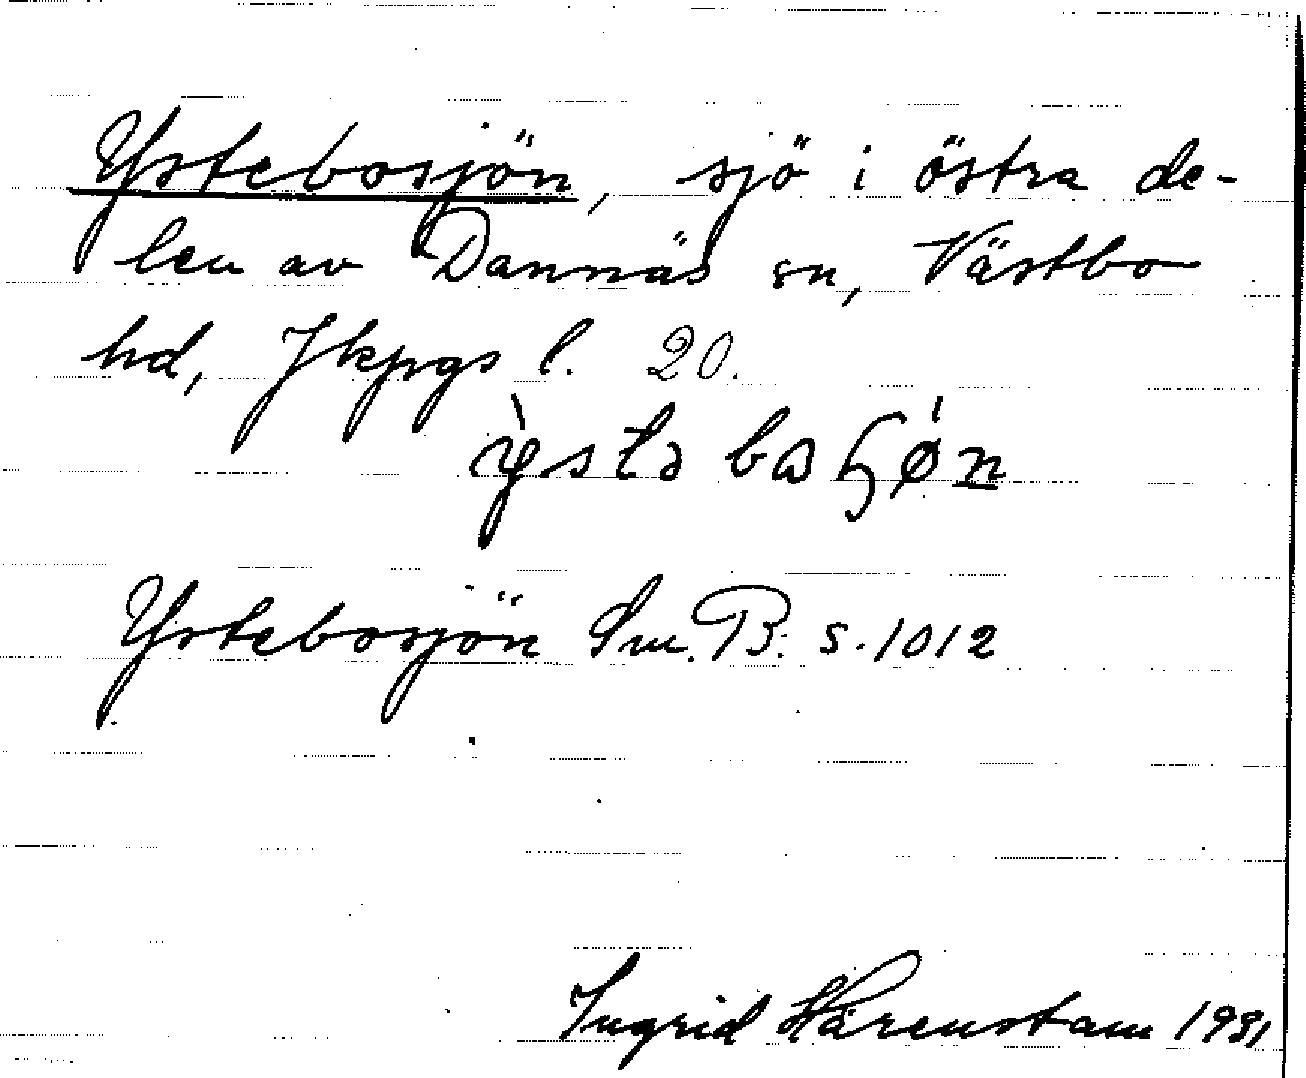 Ystebosjön, sjö i östra de-
len av Dannäs sn, Västbo
hd, Jkpgs l. 20.
Ystebosjön Sm. B. s. 1012
Ingrid Härenstam 1931